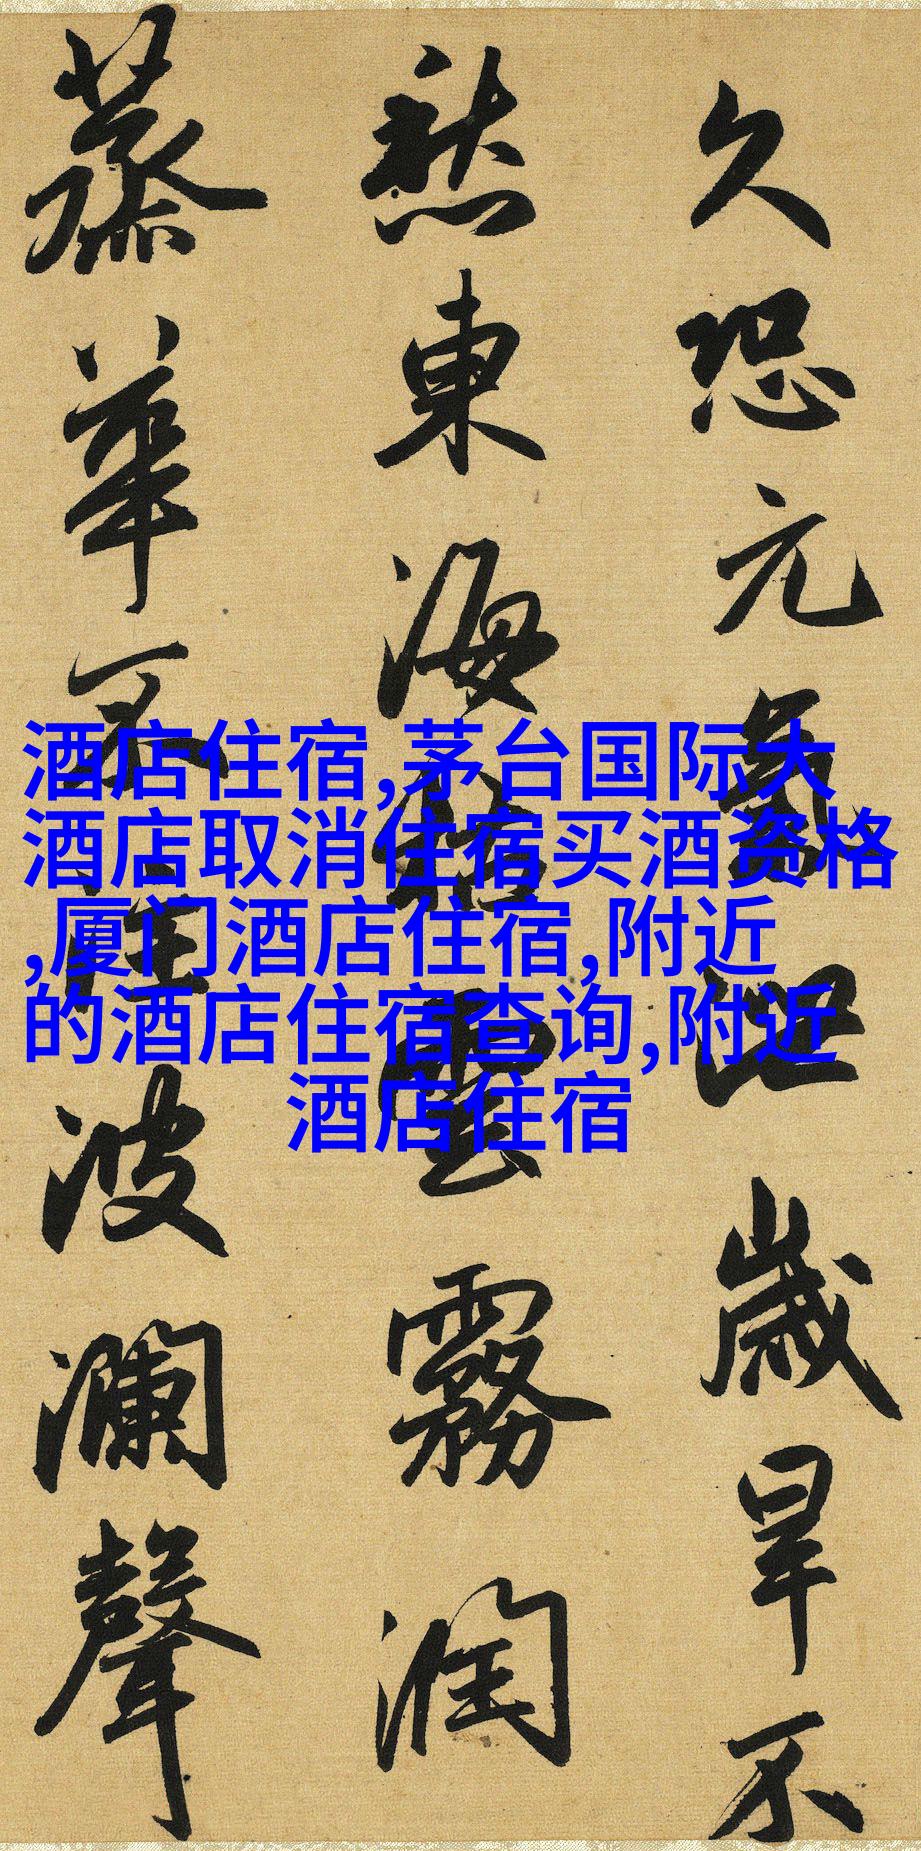 久恐元氣泄歲旱不
愁東海枯雲霧潤
蒸華不注波瀾聲
酒店住宿,茅台国际大
酒店取消住宿买酒资格
,厦门酒店住宿,附近
的酒店住宿查询,附近
酒店住宿